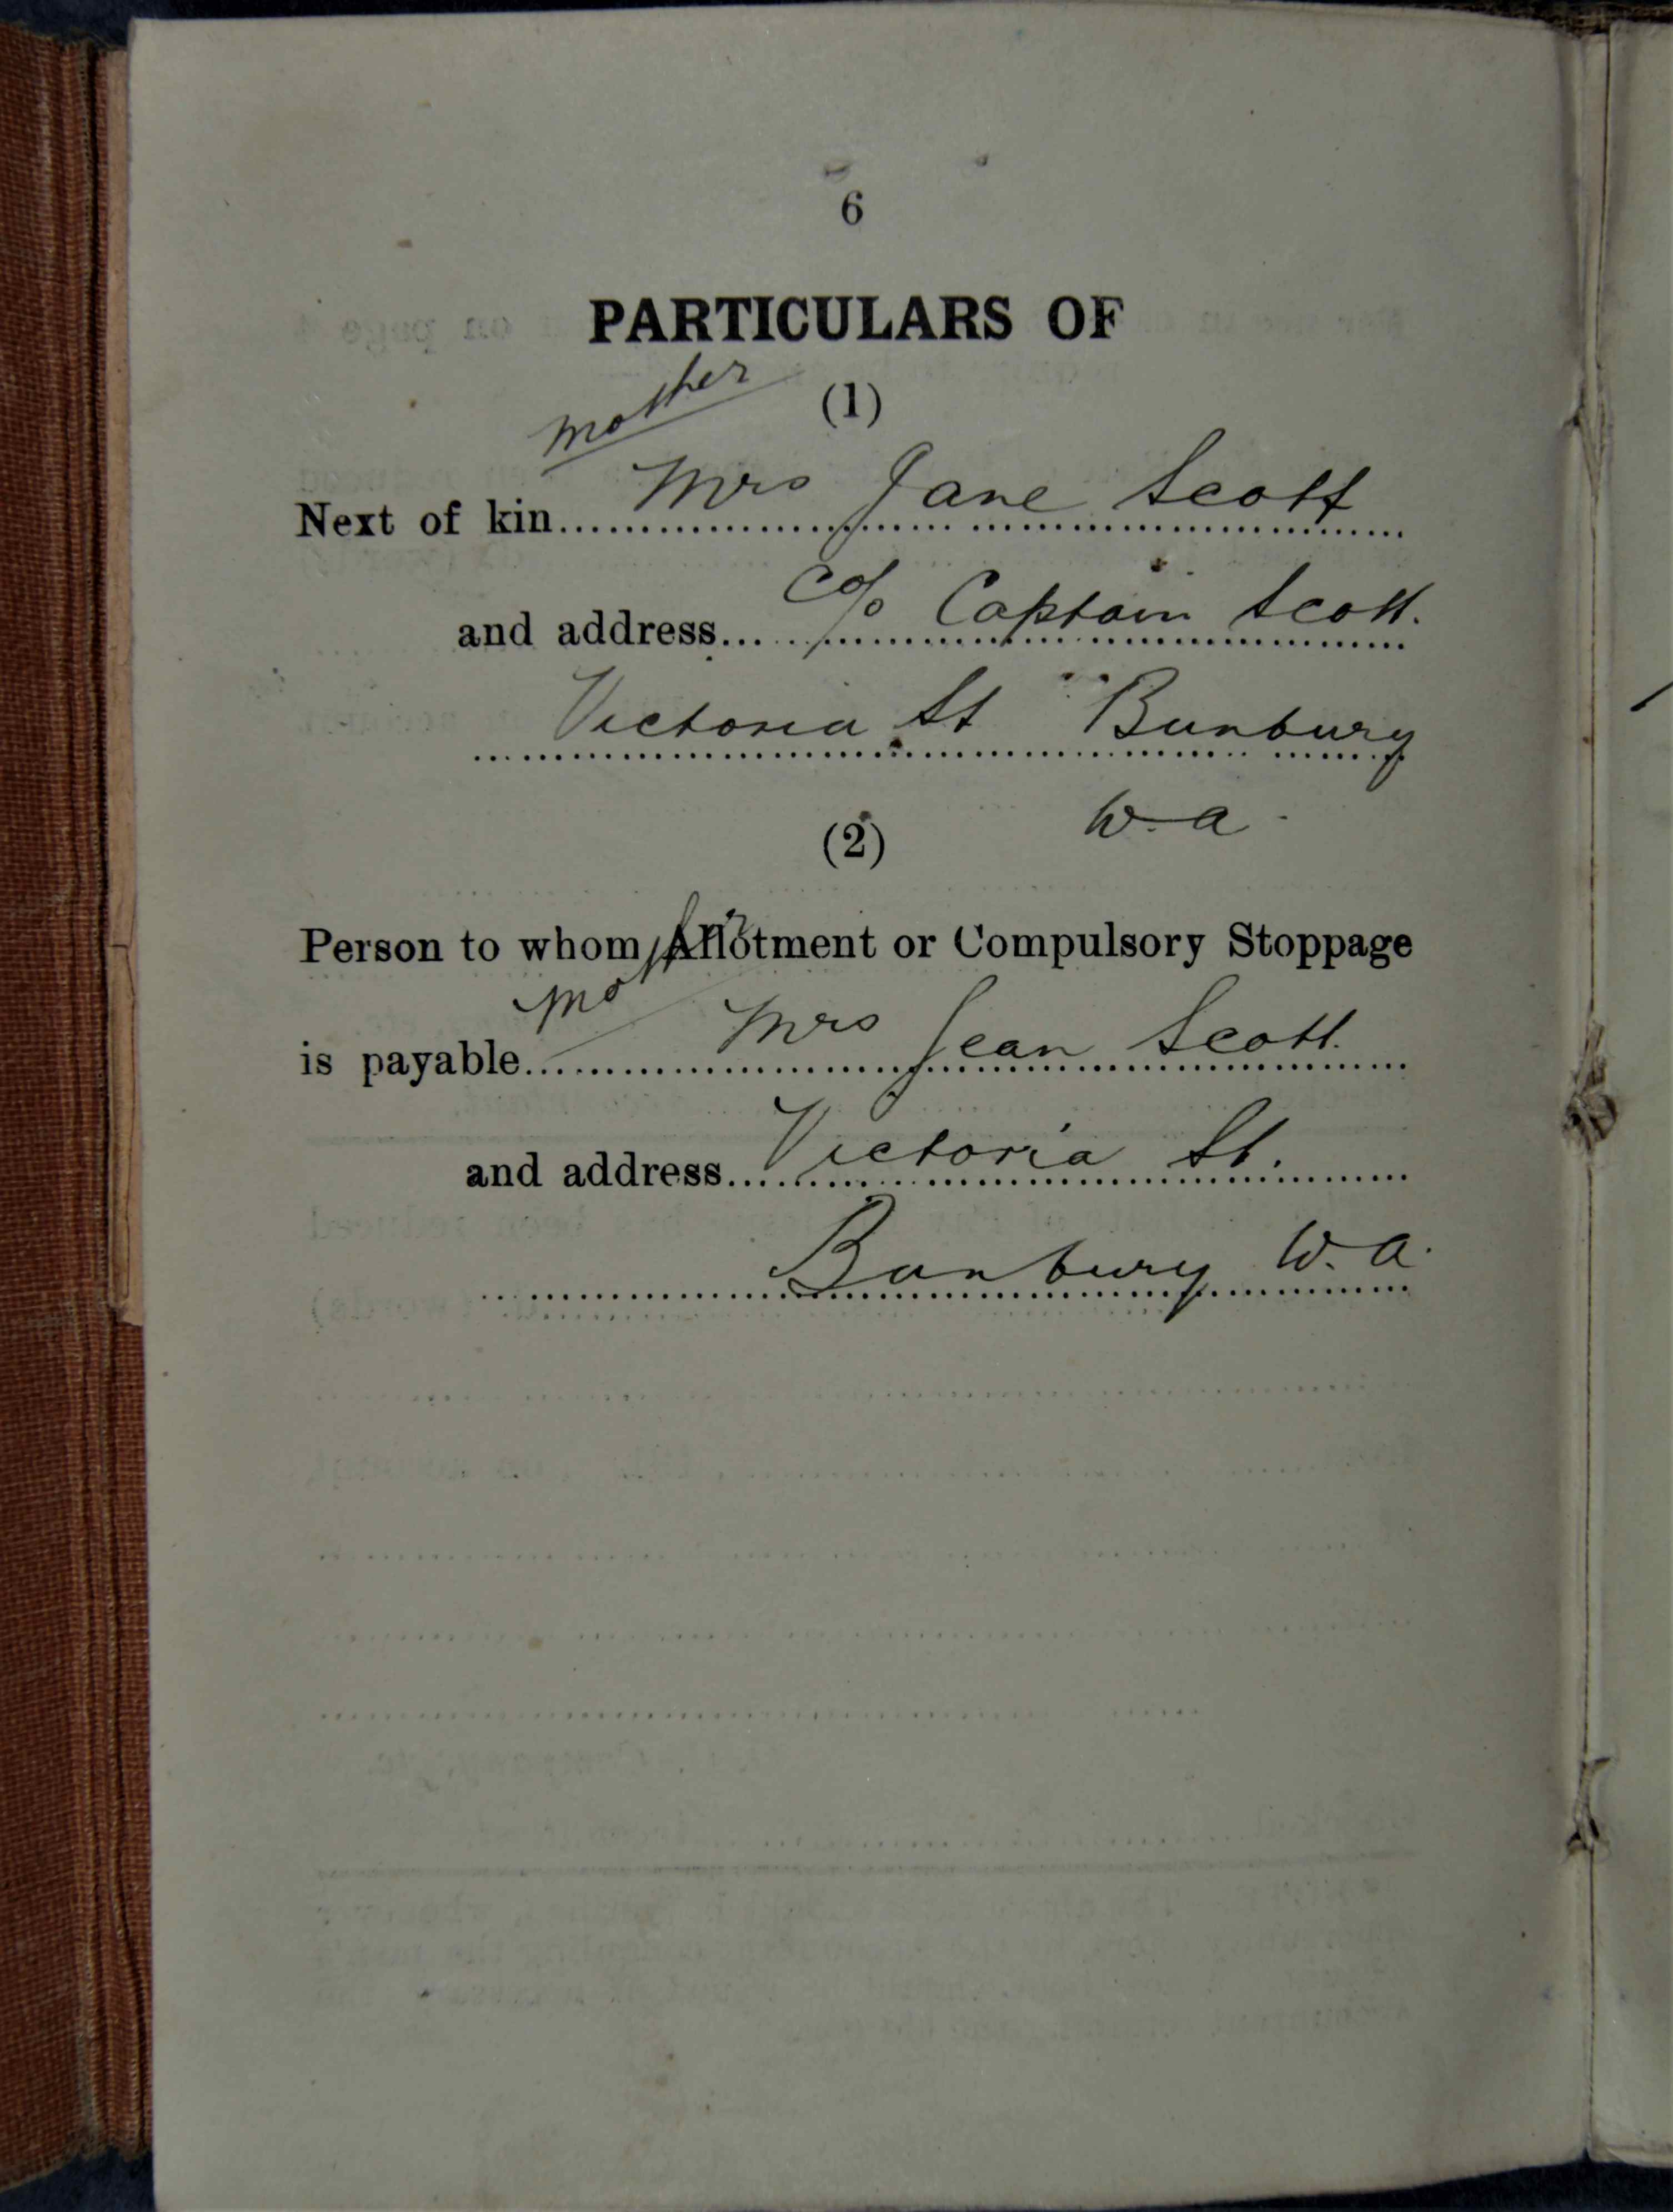 6
PARTICULARS OF
mother
(1)
Next of kin Mrs Jane Scott
and address C/o Captain Scott.
Victoria St Bunbury
W.A.
(2)
Person to whom Allotment or Compulsory Stoppage
mother
is payable Mrs Jean Scott.
and address Victoria St.
Bunbury W.A.